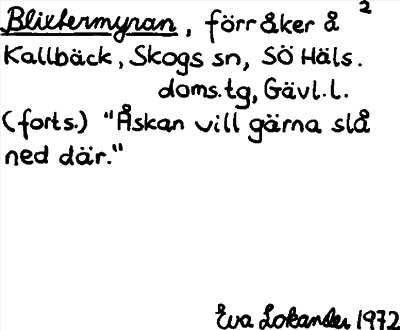 Blixtermyran, förr åker å 2
Kallbäck, Skogs sn, SÖ Häls.
doms.tg, Gävl.l.
(forts.) "Åskan vill gärna slå
ned där."
Eva Lokander 1972